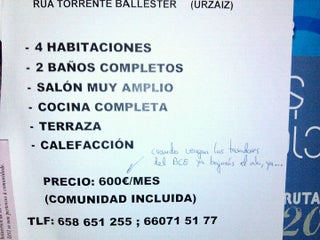 RUA TORRENTE BALLESTER (URZAIZ)
- 4 HABITACIONES
- 2 BAÑOS COMPLETOS
- SALÓN MUY AMPLIO
- COCINA COMPLETA
- TERRAZA
- CALEFACCIÓN
cuando vengan los hombres
del BCE ya bajarás el ..., ya...
PRECIO: 600€/MES
(COMUNIDAD INCLUIDA)
TLF: 658 651 255 ; 66071 51 77
RUTA
20